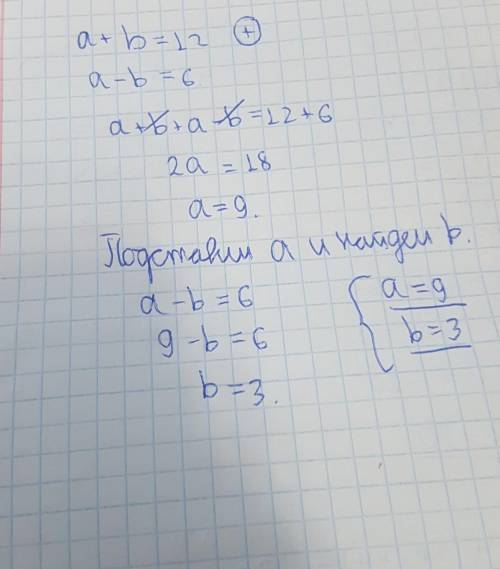 a + b = 12 ⊕
a - b = 6
a + b + a - b = 12 + 6
2a = 18
a = 9.
Подставим a и найдем b.
a - b = 6
9 - b = 6
b = 3.
{ a = 9
b = 3